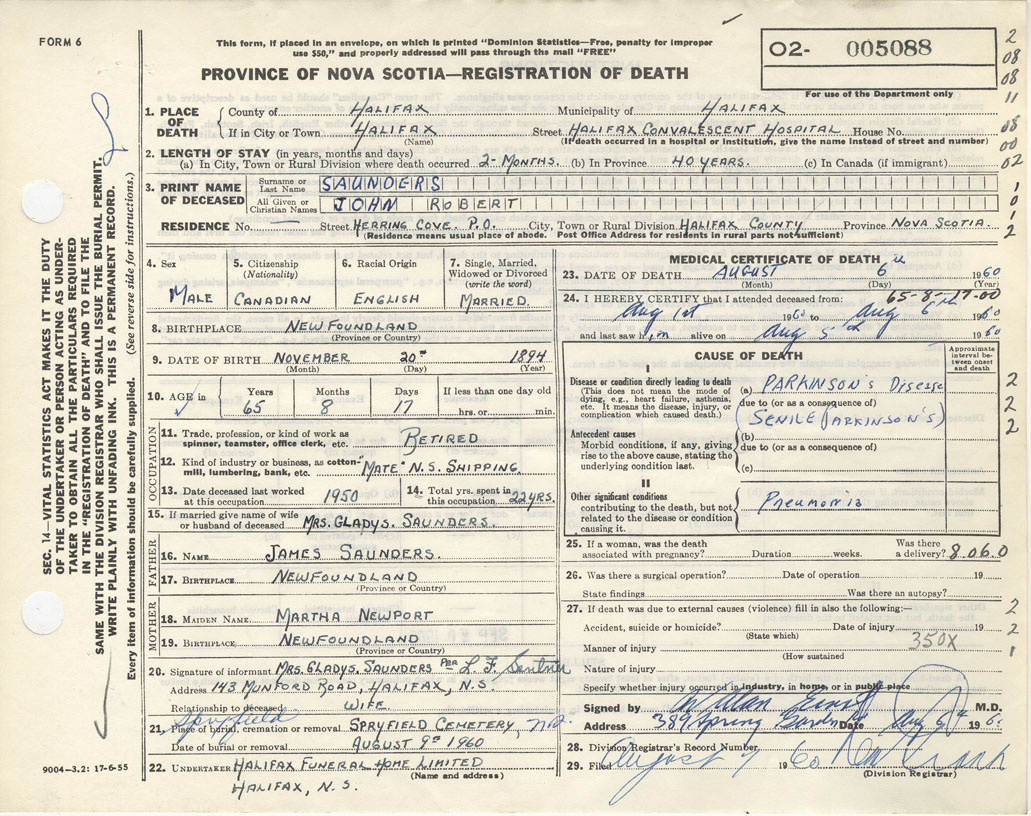 FORM 6
This form, if placed in an envelope, on which is printed "Dominion Statistics—Free, penalty for improper
use $50," and properly addressed will pass through the mail "FREE"
PROVINCE OF NOVA SCOTIA—REGISTRATION OF DEATH
O2- 005088
For use of the Department only
2
08
08
11
08
00
02
1
0
1
2
1. PLACE OF DEATH
County of HALIFAX Municipality of HALIFAX
If in City or Town HALIFAX Street HALIFAX CONVALESCENT HOSPITAL House No.
(Name) (If death occurred in a hospital or institution, give the name instead of street and number)
2. LENGTH OF STAY (in years, months and days)
(a) In City, Town or Rural Division where death occurred 2-MONTHS. (b) In Province 40 YEARS. (c) In Canada (if immigrant)
3. PRINT NAME OF DECEASED
Surname or Last Name SAUNDERS
All Given or Christian Names JOHN ROBERT
RESIDENCE No. — Street HERRING COVE. P.O. City, Town or Rural Division HALIFAX COUNTY Province NOVA SCOTIA.
(Residence means usual place of abode. Post Office Address for residents in rural parts not sufficient)
4. Sex MALE
5. Citizenship (Nationality) CANADIAN
6. Racial Origin ENGLISH
7. Single, Married, Widowed or Divorced (write the word) MARRIED.
8. BIRTHPLACE NEWFOUNDLAND
(Province or Country)
9. DATE OF BIRTH NOVEMBER 20TH 1894
(Month) (Day) (Year)
10. AGE in Years 65 Months 8 Days 17 If less than one day old hrs. or min.
OCCUPATION
11. Trade, profession, or kind of work as spinner, teamster, office clerk, etc. RETIRED
12. Kind of industry or business, as cotton-mill, lumbering, bank, etc. "MATE" N.S. SHIPPING
13. Date deceased last worked at this occupation. 1950
14. Total yrs. spent in this occupation 22 YRS.
15. If married give name of wife or husband of deceased MRS. GLADYS. SAUNDERS.
FATHER
16. NAME JAMES SAUNDERS.
17. BIRTHPLACE NEWFOUNDLAND
(Province or Country)
MOTHER
18. MAIDEN NAME MARTHA NEWPORT
19. BIRTHPLACE NEWFOUNDLAND
(Province or Country)
20. Signature of informant MRS. GLADYS. SAUNDERS PER L. F. Sentner
Address 143 MUNFORD ROAD, HALIFAX, N.S.
Relationship to deceased WIFE.
Spryfield
21. Place of burial, cremation or removal SPRYFIELD CEMETERY, N.S.
Date of burial or removal AUGUST 9TH 1960
22. UNDERTAKER HALIFAX FUNERAL HOME LIMITED
(Name and address)
HALIFAX, N.S.
MEDICAL CERTIFICATE OF DEATH
23. DATE OF DEATH AUGUST 6 1960
(Month) (Day) (Year)
65-8-17-00
24. I HEREBY CERTIFY that I attended deceased from:
Aug 1st 1960 to Aug 6th 1960
and last saw him alive on Aug 5th 1960
CAUSE OF DEATH
Approximate interval between onset and death
I
Disease or condition directly leading to death
(This does not mean the mode of dying, e.g., heart failure, asthenia, etc. It means the disease, injury, or complication which caused death.)
(a) PARKINSON'S Disease
due to (or as a consequence of)
(SENILE PARKINSON'S)
Antecedent causes
Morbid conditions, if any, giving rise to the above cause, stating the underlying condition last.
(b)
due to (or as a consequence of)
(c)
II
Other significant conditions contributing to the death, but not related to the disease or condition causing it.
Pneumonia
2
2
2
25. If a woman, was the death associated with pregnancy? Duration weeks. Was there a delivery? 8060
26. Was there a surgical operation? Date of operation 19
State findings Was there an autopsy?
27. If death was due to external causes (violence) fill in also the following:—
Accident, suicide or homicide? Date of injury 19
(State which)
Manner of injury 350X
(How sustained)
Nature of injury
Specify whether injury occurred in industry, in home, or in public place
2
2
1
Signed by M.D.
Address 389 Spring Garden Date Aug 6th 1960
28. Division Registrar's Record Number
29. Filed August 9 1960
(Division Registrar)
SEC. 14—VITAL STATISTICS ACT MAKES IT THE DUTY
OF THE UNDERTAKER OR PERSON ACTING AS UNDER-
TAKER TO OBTAIN ALL THE PARTICULARS REQUIRED
IN THE "REGISTRATION OF DEATH" AND FILE THE
SAME WITH THE DIVISION REGISTRAR WHO SHALL ISSUE THE BURIAL PERMIT.
WRITE PLAINLY WITH UNFADING INK. THIS IS A PERMANENT RECORD.
Every item of information should be carefully supplied. (See reverse side for instructions.)
9004-3.2: 17-6-55